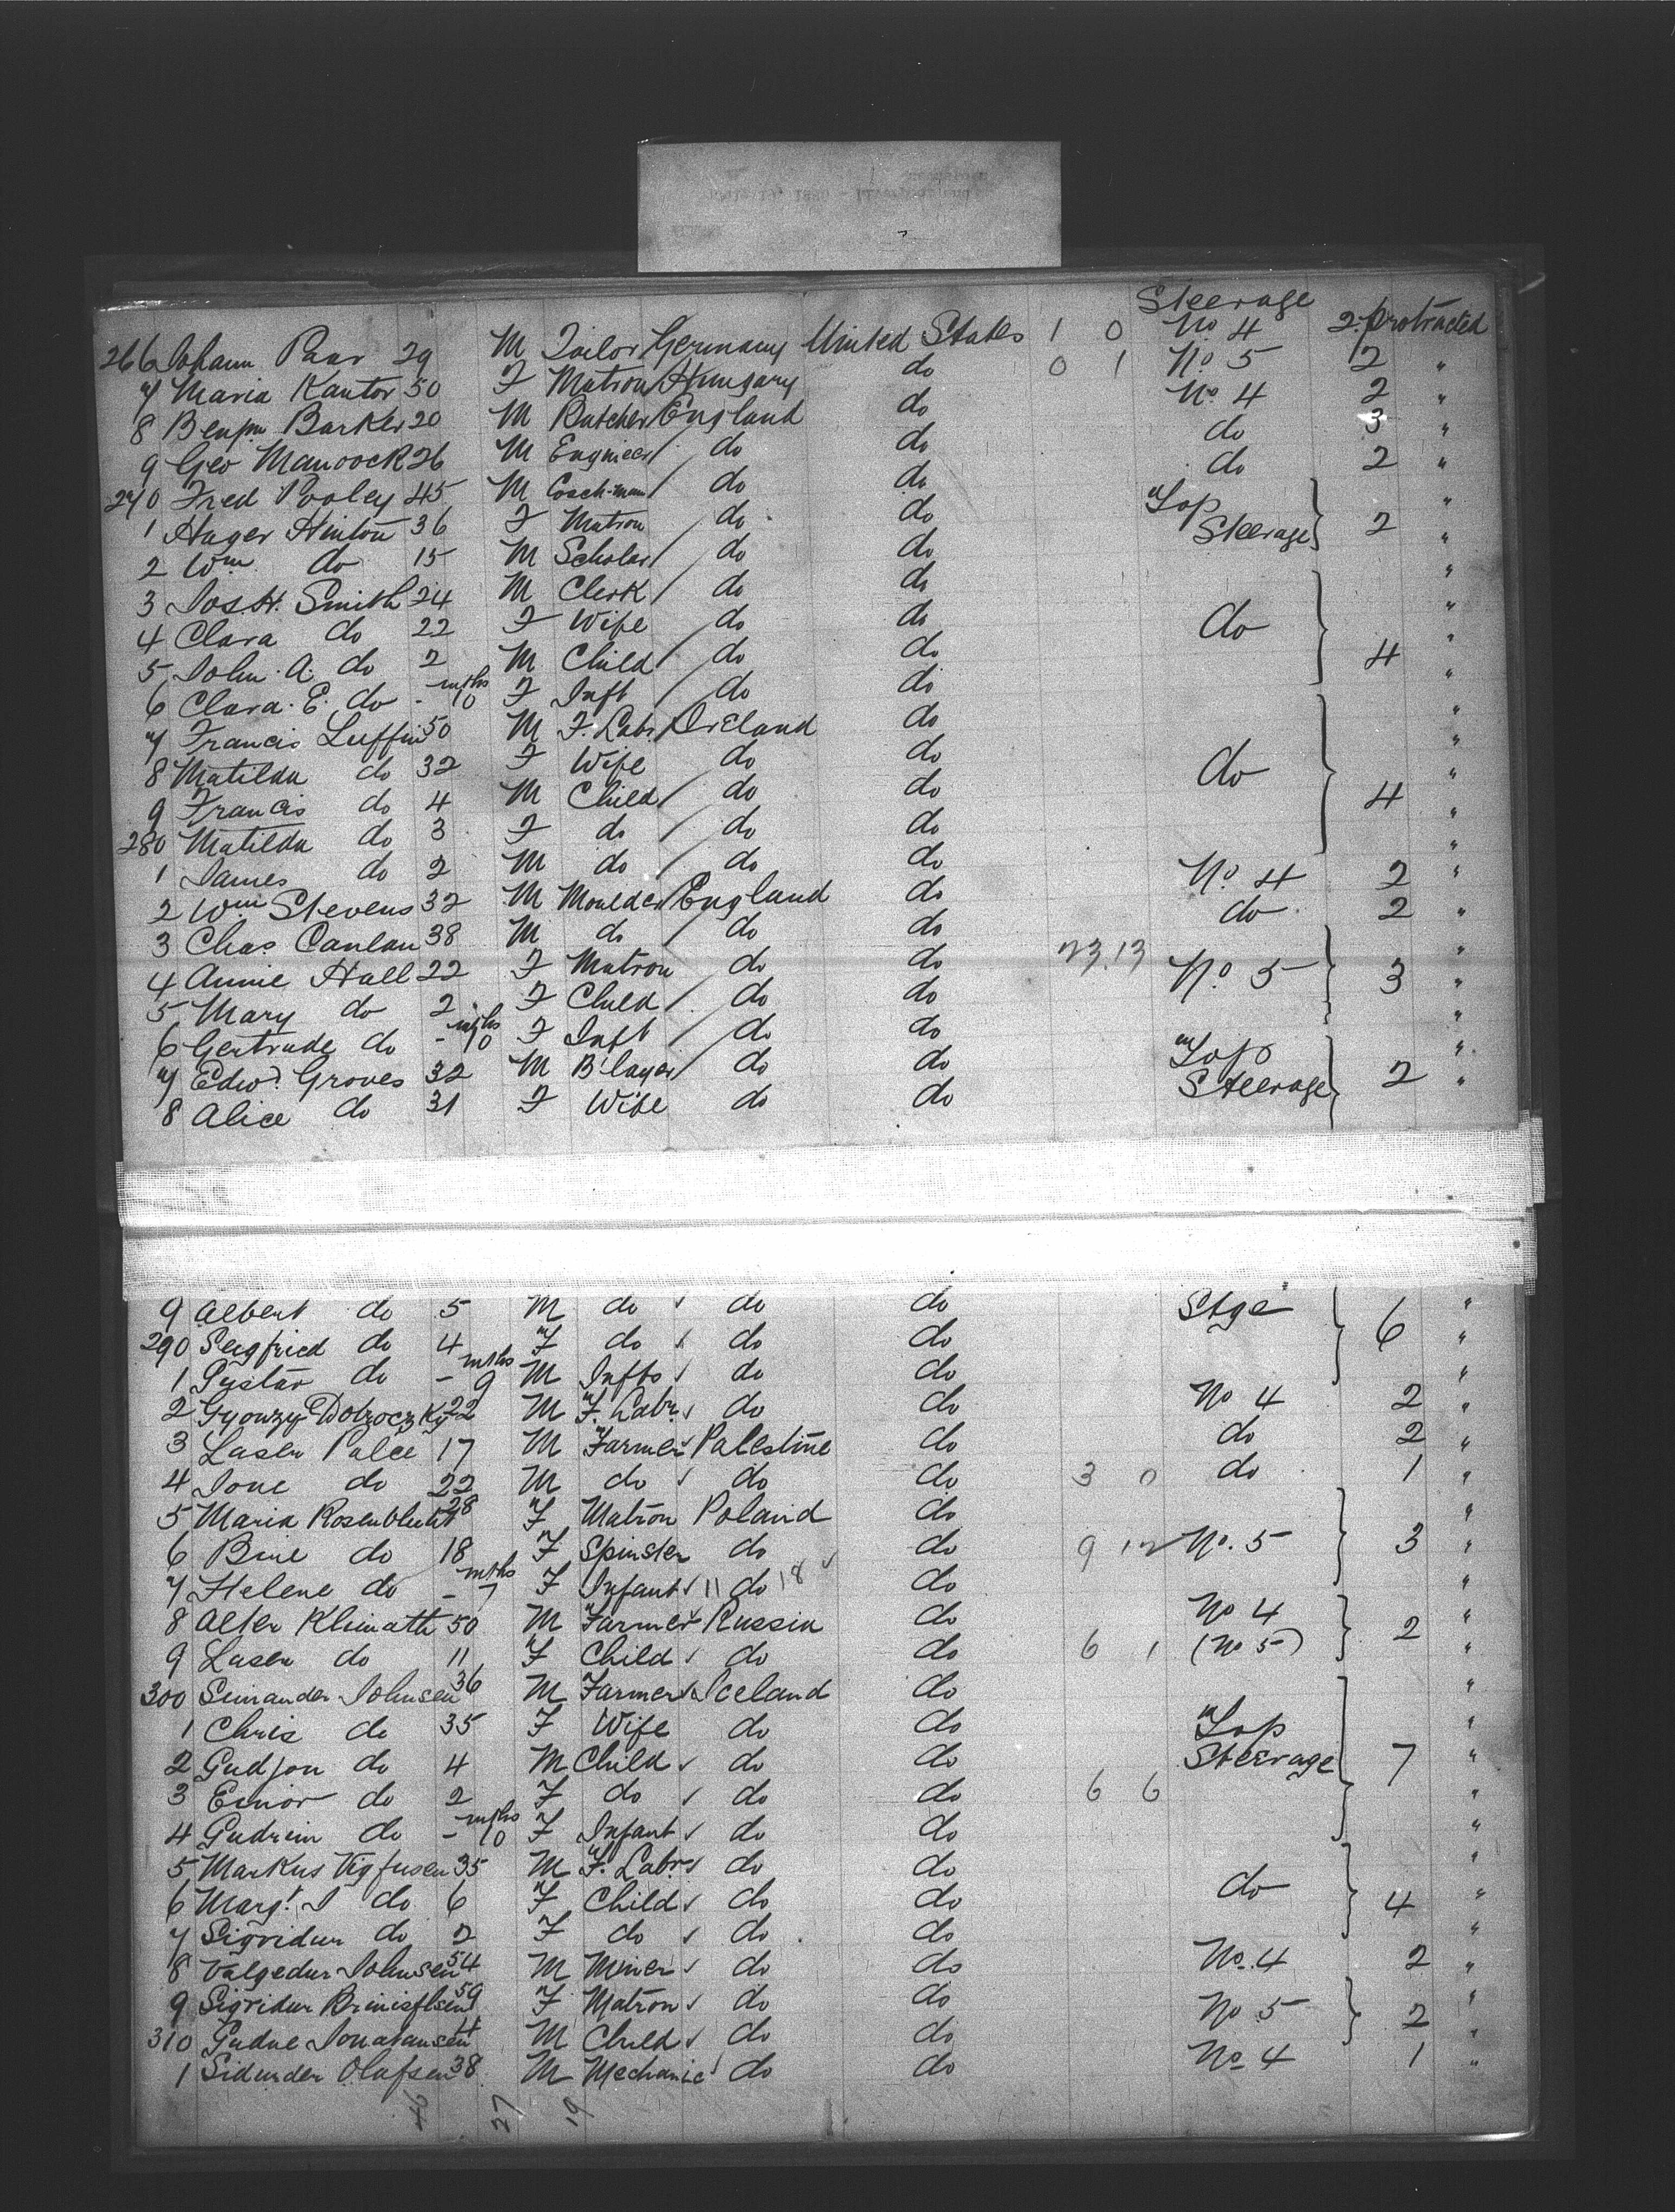 Steerage
266 Johann Paar 29 M Tailor Germany United States 1 0 No 4 2 protracted
7 Maria Kantor 50 F Matron Hungary do 0 1 No. 5 2 "
8 Benjn Barker 20 M Butcher England do No. 4 2 "
9 Geo Manoock 26 M Engineer do do do 3 "
270 Fred Pooley 45 M Coach-man do do do 2 "
1 Hager Hinton 36 F Matron do do Top "
2 Wm do 15 M Scholar do do Steerage 2 "
3 Jos. H. Smith 24 M Clerk do do "
4 Clara do 22 F Wife do do do "
5 John. A. do 2 M Child do do 4 "
6 Clara. E. do - mths 10 F Inft do do "
7 Francis Luffin 50 M F. Labr Ireland do "
8 Matilda do 32 F Wife do do "
9 Francis do 4 M Child do do do 4 "
280 Matilda do 3 F do do do "
1 James do 2 M do do do "
2 Wm Stevens 32 M Moulder England do No. 4 2 "
3 Chas Canlan 38 M do do do do 2 "
4 Annie Hall 22 F Matron do do 23.13 No 5 3 "
5 Mary do 2 F Child do do "
6 Gertrude do - mths 10 F Inft do do "
7 Edwd. Groves 32 M B'layer do do Top "
8 Alice do 31 F Wife do do Steerage 2 "
9 Albert do 5 M do do do Stge 6 "
290 Segfried do 4 F do do do "
1 Gustav do - mths 9 M Infts do do "
2 Gyowzy Dobroczky 22 M F. Labr. do do No 4 2 "
3 Laser Palee 17 M Farmer Palestine do do 2 "
4 Jone do 22 M do do do 3 0 do 1 "
5 Maria Rosenbluth 28 F Matron Poland do "
6 Bine do 18 F Spinster do do 9 12 No. 5 3 "
7 Helene do - mths 7 F Infant 11 do 18 do "
8 Alter Klimath 50 M Farmer Russia do No 4 "
9 Laser do 11 F Child do do 6 1 (No 5) 2 "
300 Sumander Johnsen 36 M Farmer Iceland do "
1 Chris do 35 F Wife do do Top "
2 Gudjon do 4 M Child do do Steerage 7 "
3 Einor do 2 F do do do 6 6 "
4 Gudrun do - mths 10 F Infant do do "
5 Markus Vigfusen 35 M F. Labr do do "
6 Margt. J do 6 F Child do do do 4 "
7 Sigridur do 2 F do do do "
8 Valgedur Johnsen 54 M Miner do do No. 4 2 "
9 Sigridur 59 F Matron do do No 5 2 "
310 Gudne Jonathansen 4 M Child do do "
1 Sidurder Olafsen 38 M Mechanic do do No 4 1 "
27 19